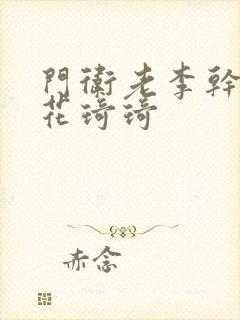 門衛老李幹
花琦琦
赤念